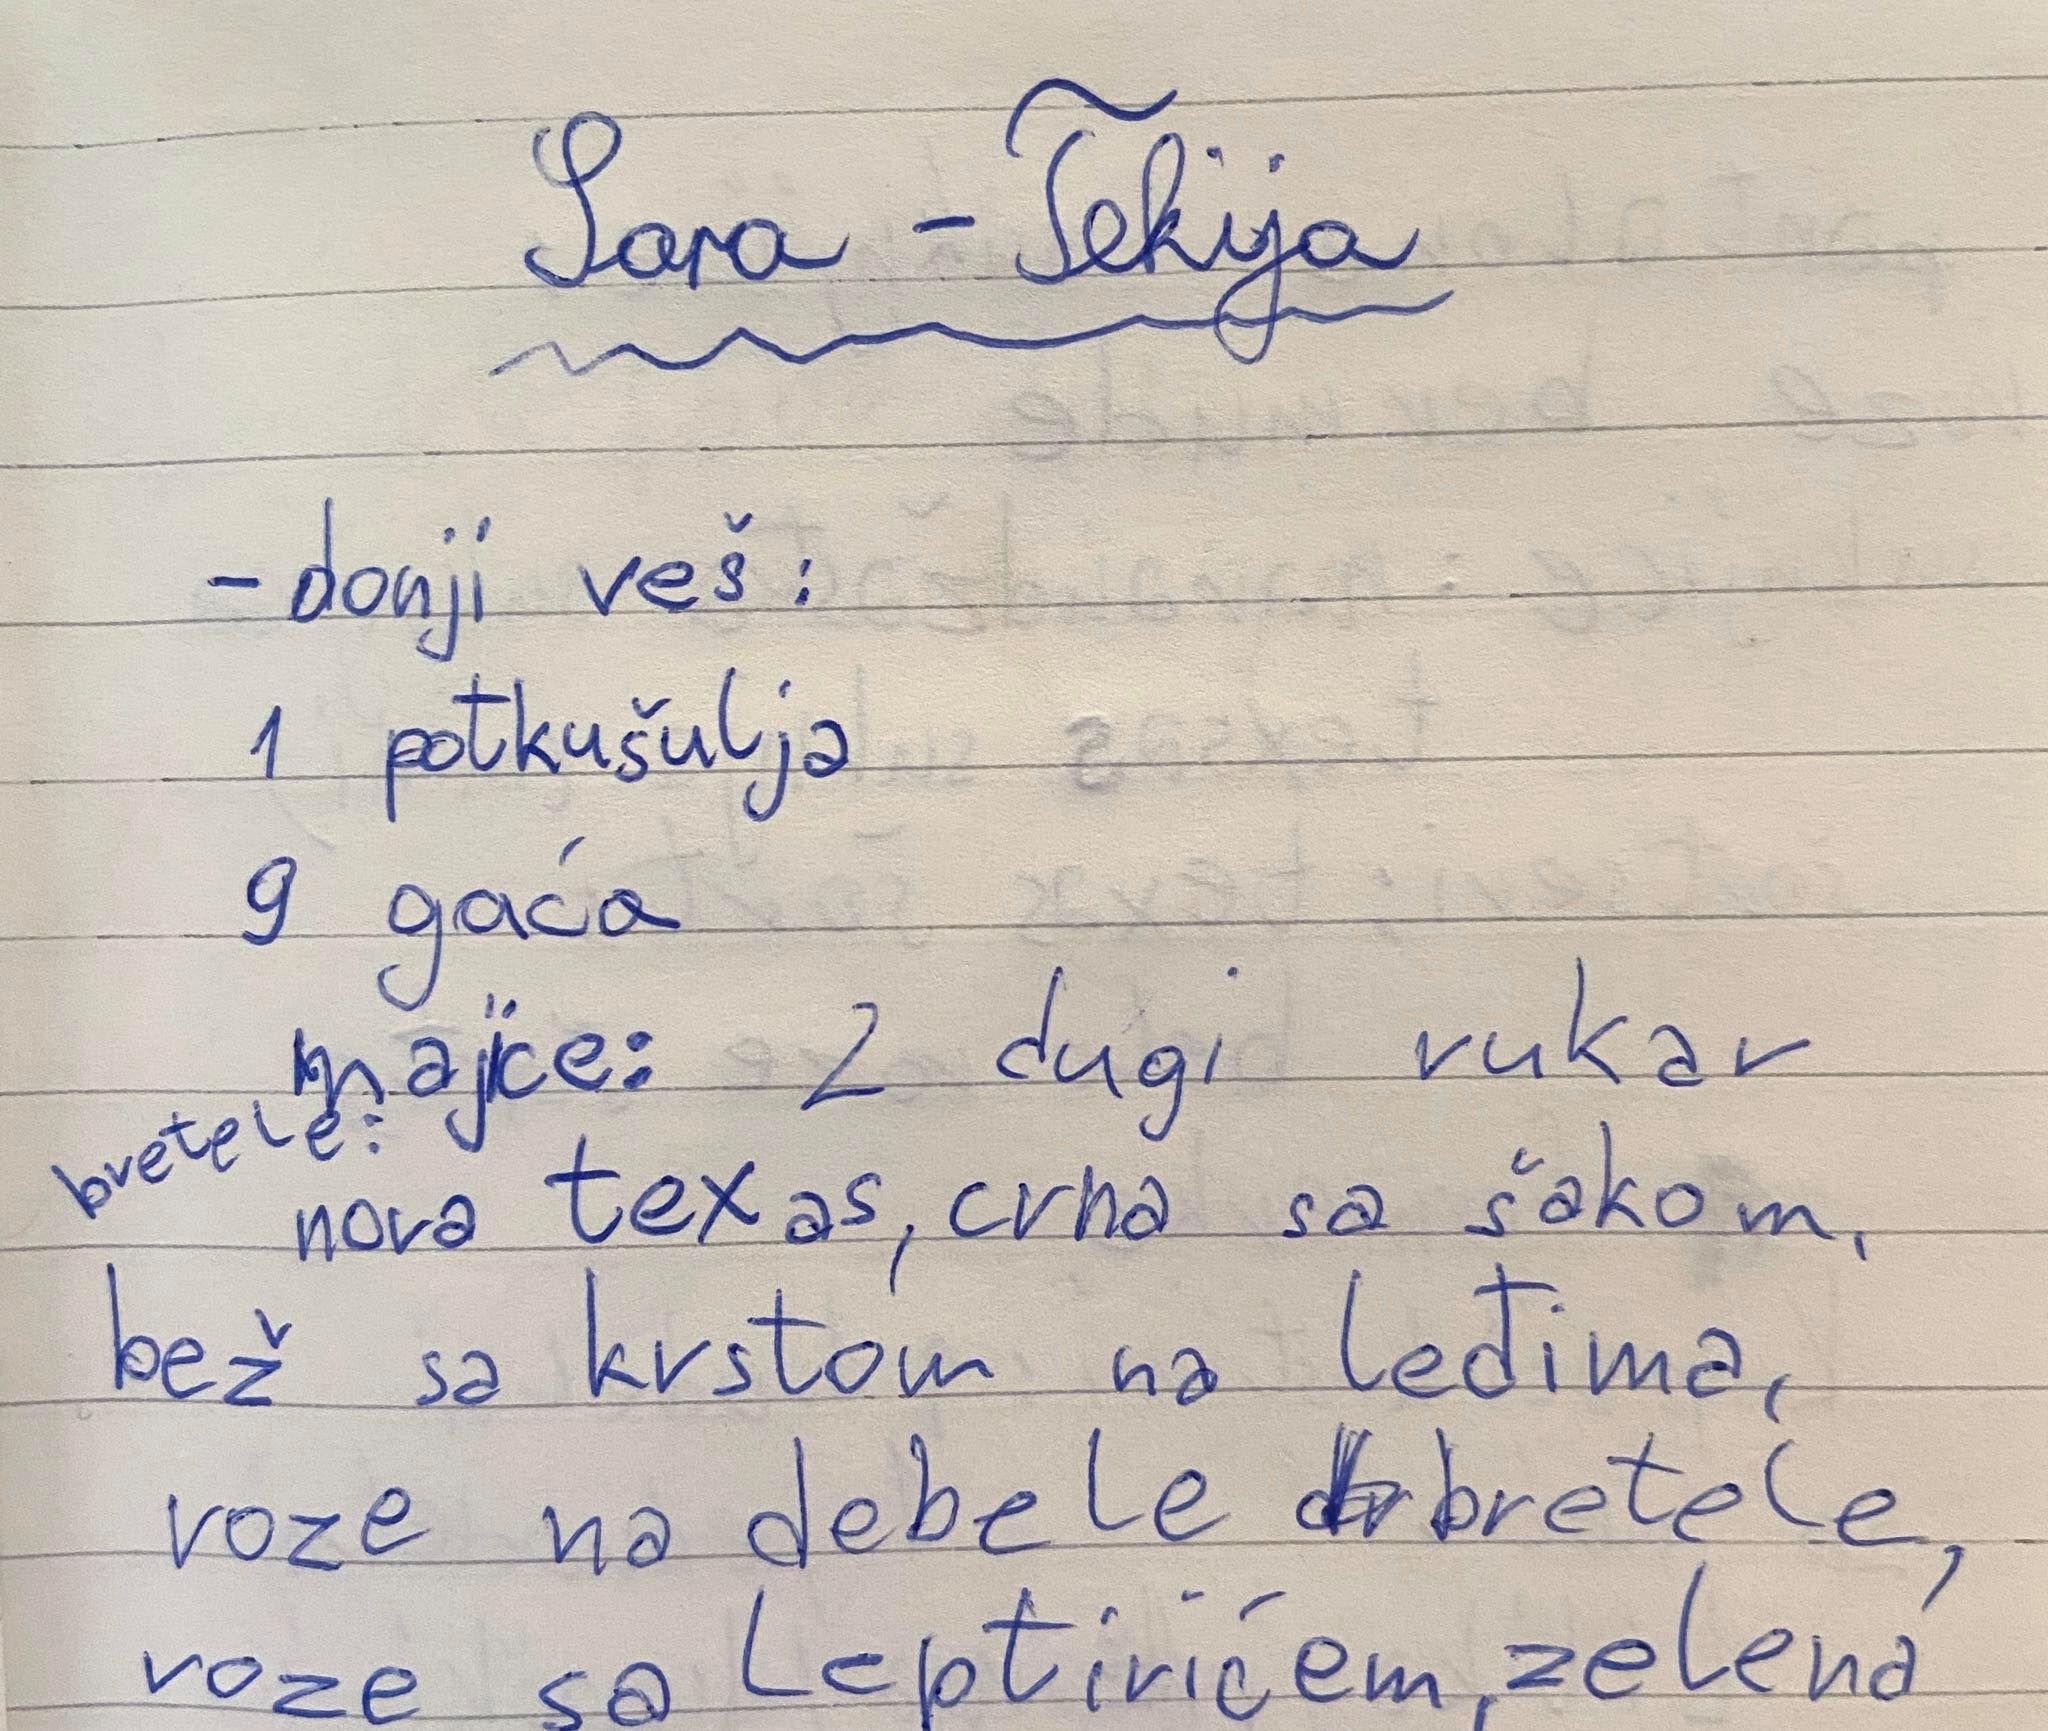 Sara - Tekija
- donji veš:
1 potkušulja
9 gaća
majice: 2 dugi rukav
bretele:
nova texas, crna sa šakom,
bež sa krstom na leđima,
roze na debele bretele,
roze sa leptirićem, zelena